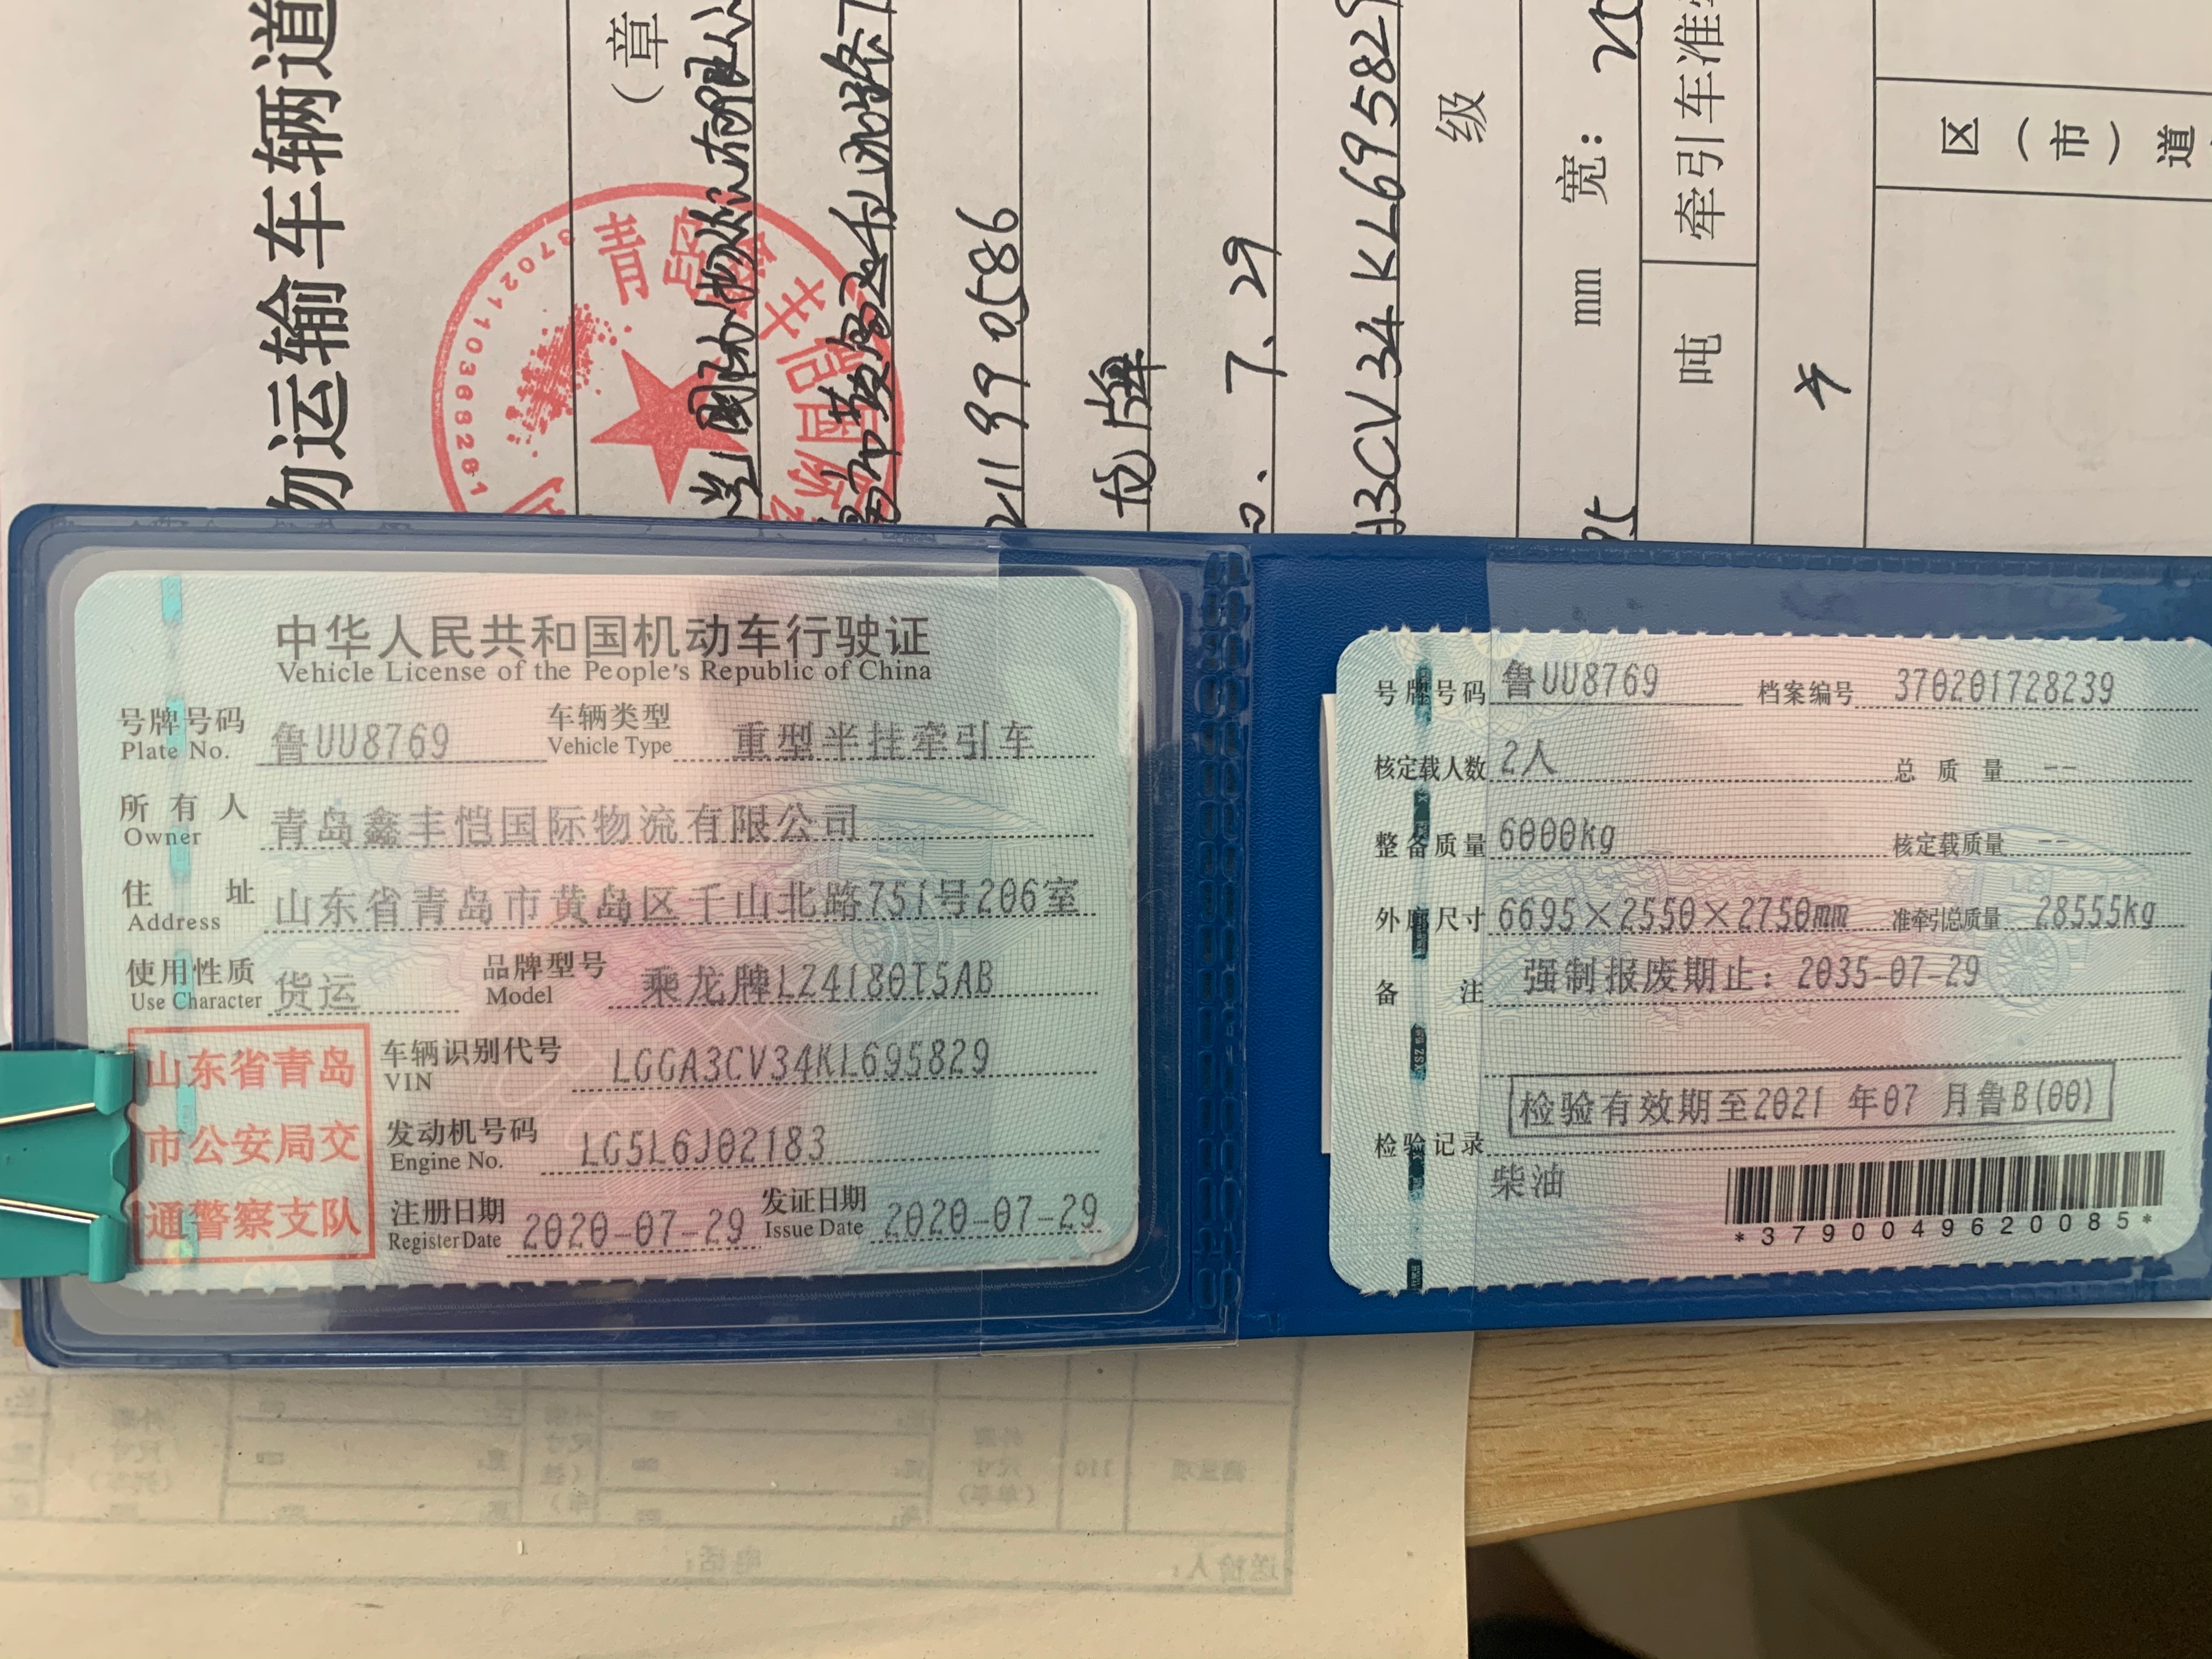 中华人民共和国机动车行驶证
Vehicle License of the People's Republic of China
号牌号码 鲁UU8769 车辆类型 重型半挂牵引车
Plate No. Vehicle Type
所有人 青岛鑫丰恺国际物流有限公司
Owner
住址 山东省青岛市黄岛区千山北路751号206室
Address
使用性质 货运 品牌型号 乘龙牌LZ4180T5AB
Use Character Model
车辆识别代号 LGGA3CV34KL695829
VIN
发动机号码 LG5L6J02183
Engine No.
注册日期 2020-07-29 发证日期 2020-07-29
Register Date Issue Date
山东省青岛
市公安局交
通警察支队
号牌号码 鲁UU8769 档案编号 370201728239
核定载人数 2人 总质量 --
整备质量 6000kg 核定载质量 --
外廓尺寸 6695×2550×2750mm 准牵引总质量 28555kg
备注 强制报废期止：2035-07-29
检验有效期至2021年07月鲁B(00)
检验记录
柴油
*3790049620085*
物运输车辆道
（章
3702110368281
21199 0586
龙牌
0.7.29
A3CV34KL69582
级
95 mm 宽：25
吨 牵引车准
区（市）道